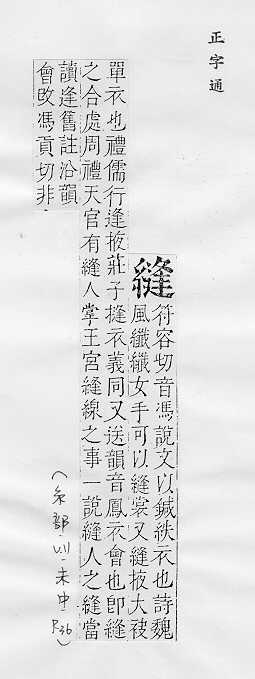 正字通
縫
符容切音馮說文以鍼紩衣也詩魏
風纖纖女手可以縫裳又縫掖大袂
單衣也禮儒行逢掖莊子摓衣義同又送韻音鳳衣會也卽縫
之合處周禮天官有縫人掌王宮縫線之事一說縫人之縫當
讀逢舊註沿韻
會改馮貢切非
(糸部.未中